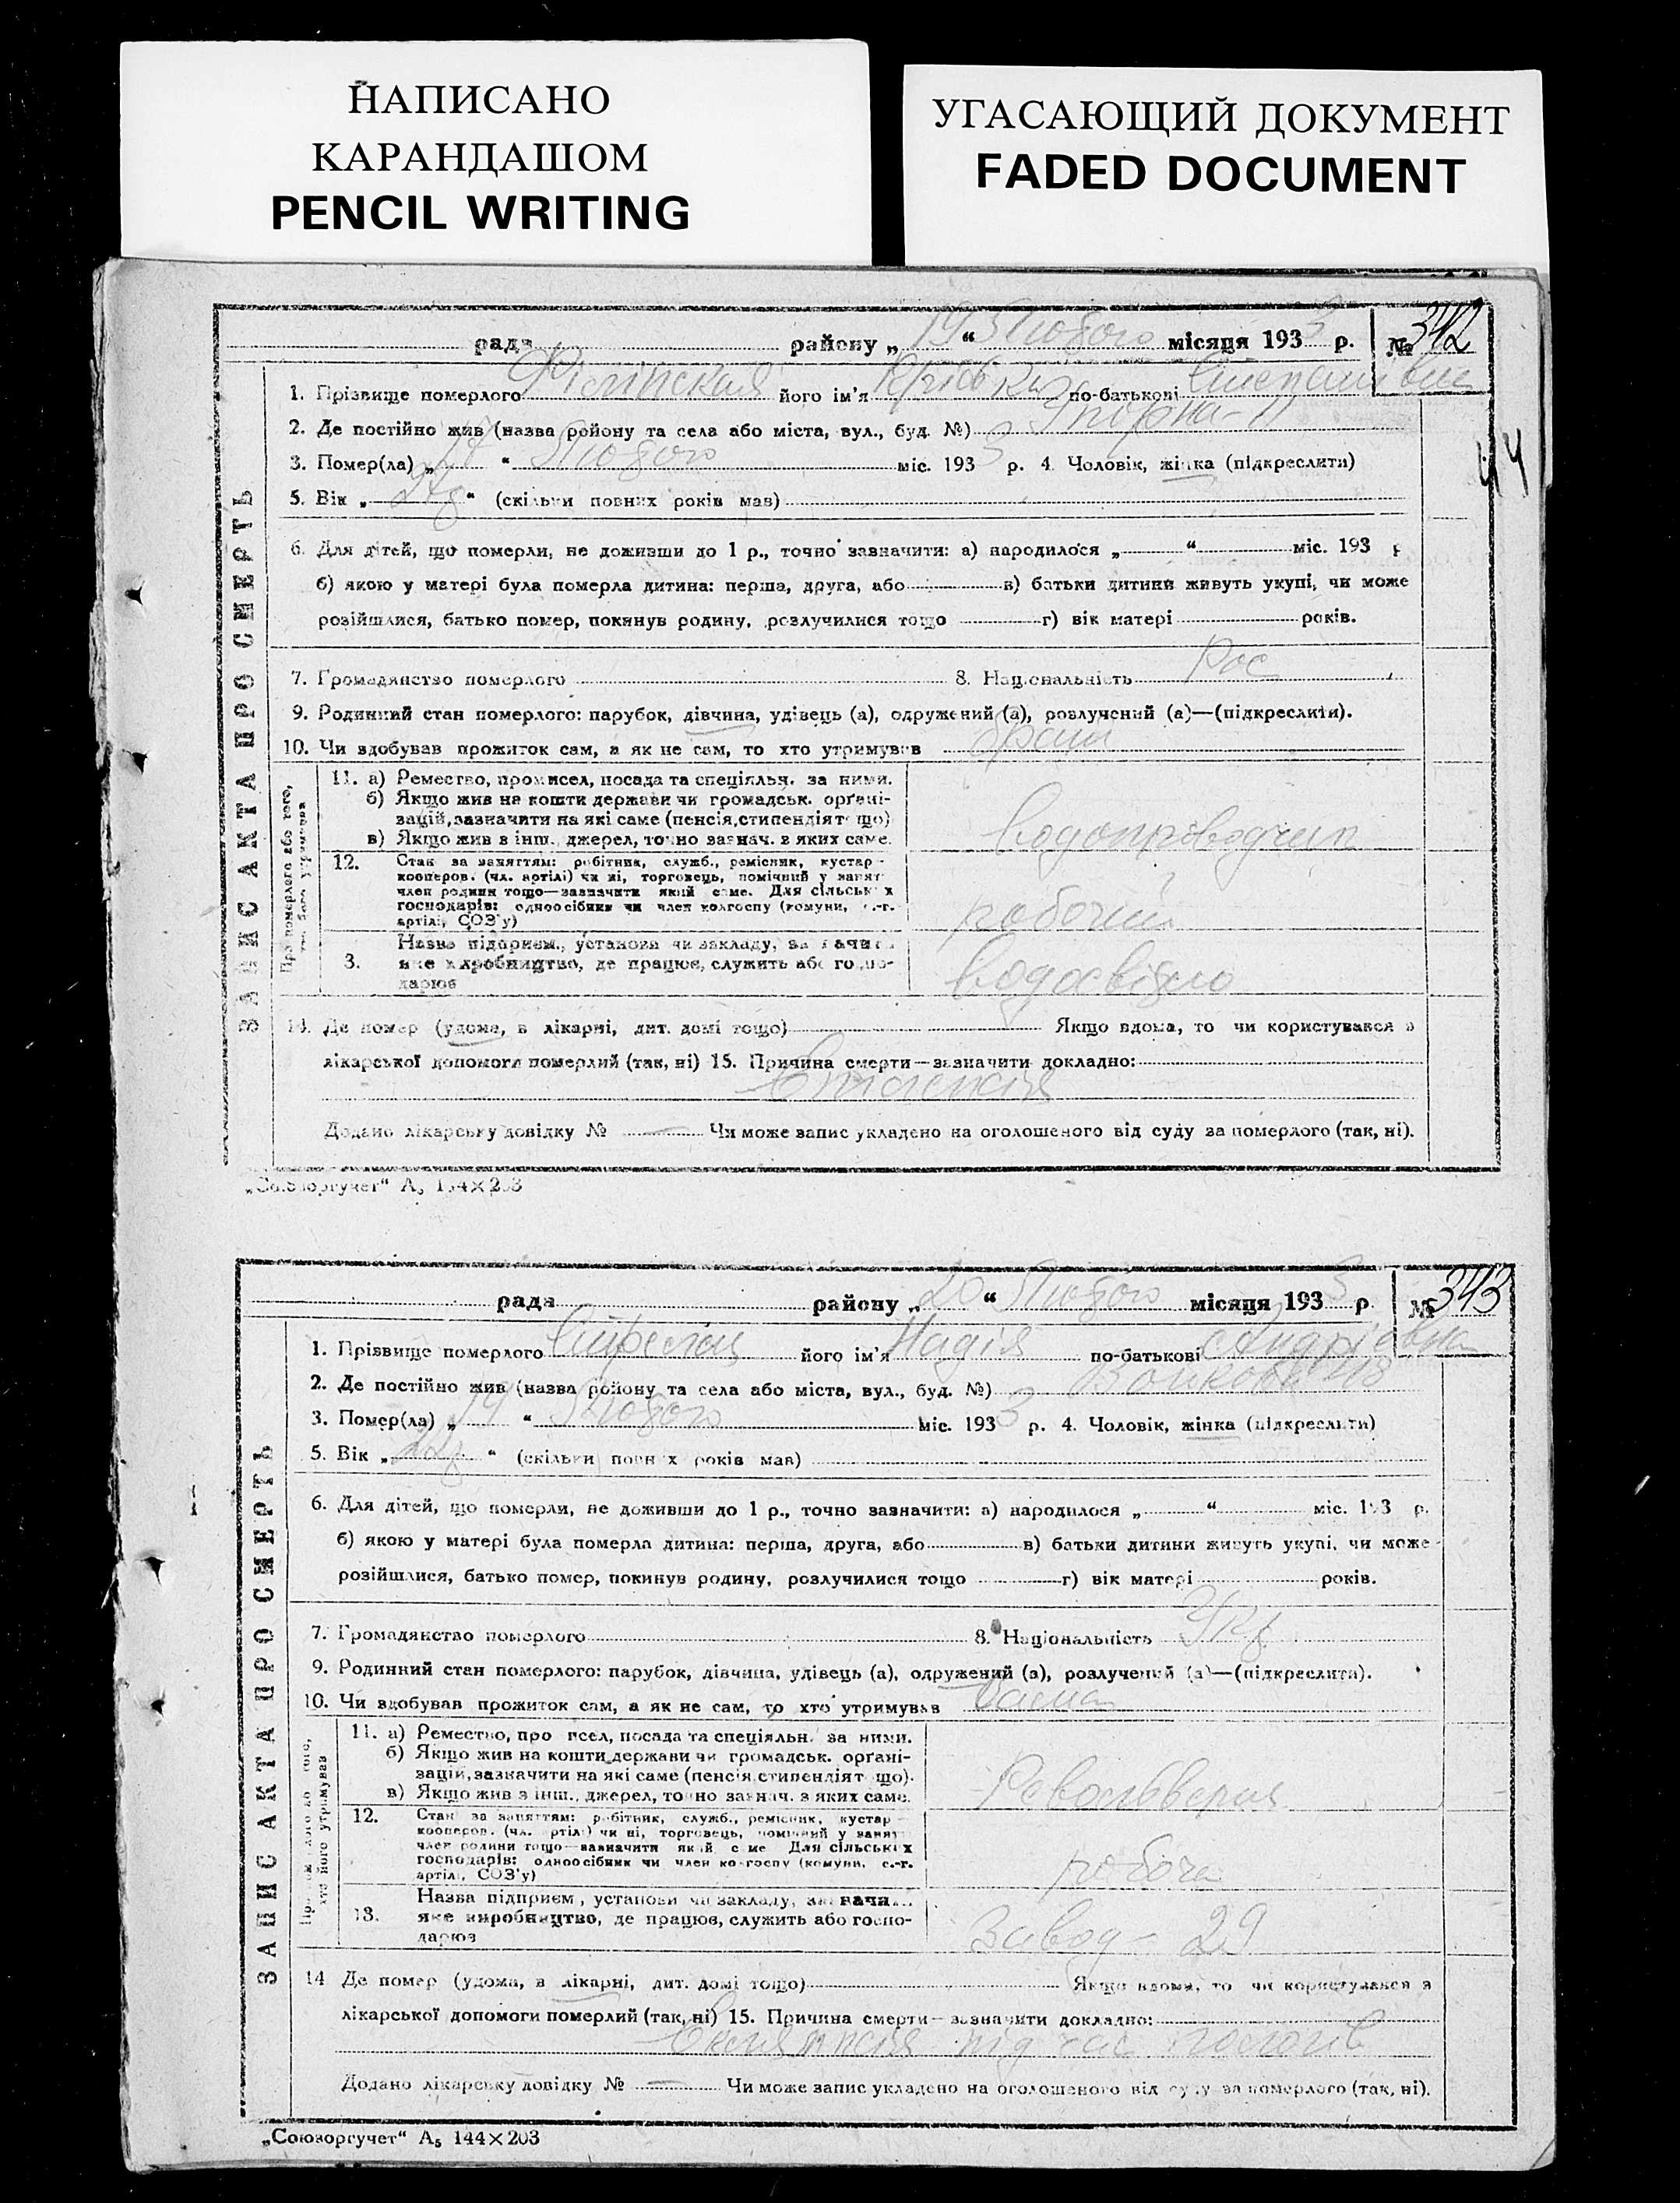 НАПИСАНО
КАРАНДАШОМ
PENCIL WRITING
УГАСАЮЩИЙ ДОКУМЕНТ
FADED DOCUMENT
рада району „19“ Лютого місяця 1933 р. № 342
1. Прізвище померлого його ім'я по-батькові Степанівна
2. Де постійно жив (назва району та села або міста, вул., буд. №)
3. Помер(ла) „ “ Лютого міс. 1933 р. 4. Чоловік, жінка (підкреслити)
5. Вік „ “ (скільки повних років мав)
44
6. Для дітей, що померли, не доживши до 1 р., точно зазначити: а) народилося „ “ міс. 193 р
б) якою у матері була померла дитина: перша, друга, або в) батьки дитини живуть укупі, чи може
розійшлися, батько помер, покинув родину, розлучилися тощо г) вік матері років.
7. Громадянство померлого 8. Національність Рос
9. Родинний стан померлого: парубок, дівчина, удівець (а), одружений (а), розлучений (а)—(підкреслити).
10. Чи здобував прожиток сам, а як не сам, то хто утримував
11. а) Ремество, промисел, посада та спеціяльн. за ними.
б) Якщо жив на кошти держави чи громадськ. орґані-
зацій, зазначити на які саме (пенсія, стипендіят що)
в) Якщо жив з інш. джерел, точно зазнач. з яких саме.
водопроводчик
12. Стан за заняттям: робітник, служб., ремісник, кустар-
кооперов. (чл. артілі) чи ні, торговець, помічний у занят
член родини тощо—зазначити який саме. Для сільських
господарів: одноосібник чи член колгоспу (комуни, с.-г.
артілі, СОЗ'у)
робочий
Назва підприєм., установи чи закладу, зазначити
3. яке виробництво, де працює, служить або госпо-
дарює
Водосвітло
14. Де помер (удома, в лікарні, дит. домі тощо) Якщо вдома, то чи користувався з
лікарської допомоги померлий (так, ні) 15. Причина смерти—зазначити докладно:
Додано лікарську довідку № — Чи може запис укладено на оголошеного від суду за померлого (так, ні).
ЗАПИС АКТА ПРО СМЕРТЬ
Про померлого або того,
хто його утримував
„Союзоргучет“ А₅ 144×203
рада району „20“ Лютого місяця 1933 р. № 343
1. Прізвище померлого його ім'я Надія по-батькові Андріевна
2. Де постійно жив (назва району та села або міста, вул., буд. №)
3. Помер(ла) „19“ Лютого міс. 1933 р. 4. Чоловік, жінка (підкреслити)
5. Вік „ “ (скільки повних років мав)
6. Для дітей, що померли, не доживши до 1 р., точно зазначити: а) народилося „ “ міс. 193 р.
б) якою у матері була померла дитина: перша, друга, або в) батьки дитини живуть укупі, чи може
розійшлися, батько помер, покинув родину, розлучилися тощо г) вік матері років.
7. Громадянство померлого 8. Національність Укр
9. Родинний стан померлого: парубок, дівчина, удівець (а), одружений (а), розлучений (а)—(підкреслити).
10. Чи здобував прожиток сам, а як не сам, то хто утримував Сама
11. а) Ремество, промисел, посада та спеціяльн. за ними.
б) Якщо жив на кошти держави чи громадськ. орґані-
зацій, зазначити на які саме (пенсія, стипендіят що).
в) Якщо жив з інш. джерел, точно зазнач. з яких саме.
12. Стан за заняттям: робітник, служб., ремісник, кустар
кооперов. (чл. артілі) чи ні, торговець, помічний у занят
член родини тощо—зазначити який саме Для сільських
господарів: одноосібник чи член колгоспу (комуни, с.-г.
артілі, СОЗ'у)
робоча
Назва підприєм, установи чи закладу, зазначи
13. яке виробництво, де працює, служить або госпо-
дарює
Завод - 29
14 Де помер (удома, в лікарні, дит. домі тощо) Якщо вдома, то чи користувався з
лікарської допомоги померлий (так, ні) 15. Причина смерти—зазначити докладно:
Еклямпсія під час пологів
Додано лікарську довідку № — Чи може запис укладено на оголошеного від суду за померлого (так, ні).
ЗАПИС АКТА ПРО СМЕРТЬ
Про померлого або того,
хто його утримував
„Союзоргучет“ А₅ 144×203